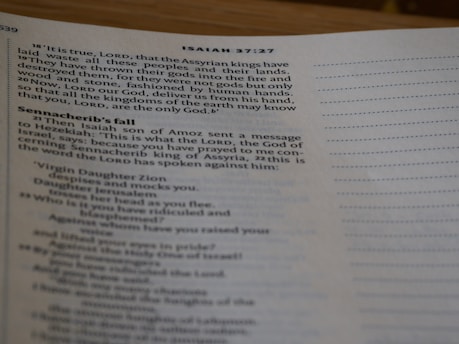 639
ISAIAH 37:27
18 'It is true, LORD, that the Assyrian kings have
laid waste all these peoples and their lands.
19 They have thrown their gods into the fire and
destroyed them, for they were not gods but only
wood and stone, fashioned by human hands.
20 Now, LORD our God, deliver us from his hand,
so that all the kingdoms of the earth may know
that you, LORD, are the only God.b'
Sennacherib's fall
21 Then Isaiah son of Amoz sent a message
to Hezekiah: 'This is what the LORD, the God of
Israel, says: because you have prayed to me con-
cerning Sennacherib king of Assyria, 22 this is
the word the LORD has spoken against him:
'Virgin Daughter Zion
despises and mocks you.
Daughter Jerusalem
tosses her head as you flee.
23 Who is it you have ridiculed and
blasphemed?
Against whom have you raised your
voice
and lifted your eyes in pride?
Against the Holy One of Israel!
24 By your messengers
you have ridiculed the Lord.
And you have said,
"With my many chariots
I have ascended the heights of the
mountains,
the utmost heights of Lebanon.
I have cut down its tallest cedars,
the choicest of its junipers.